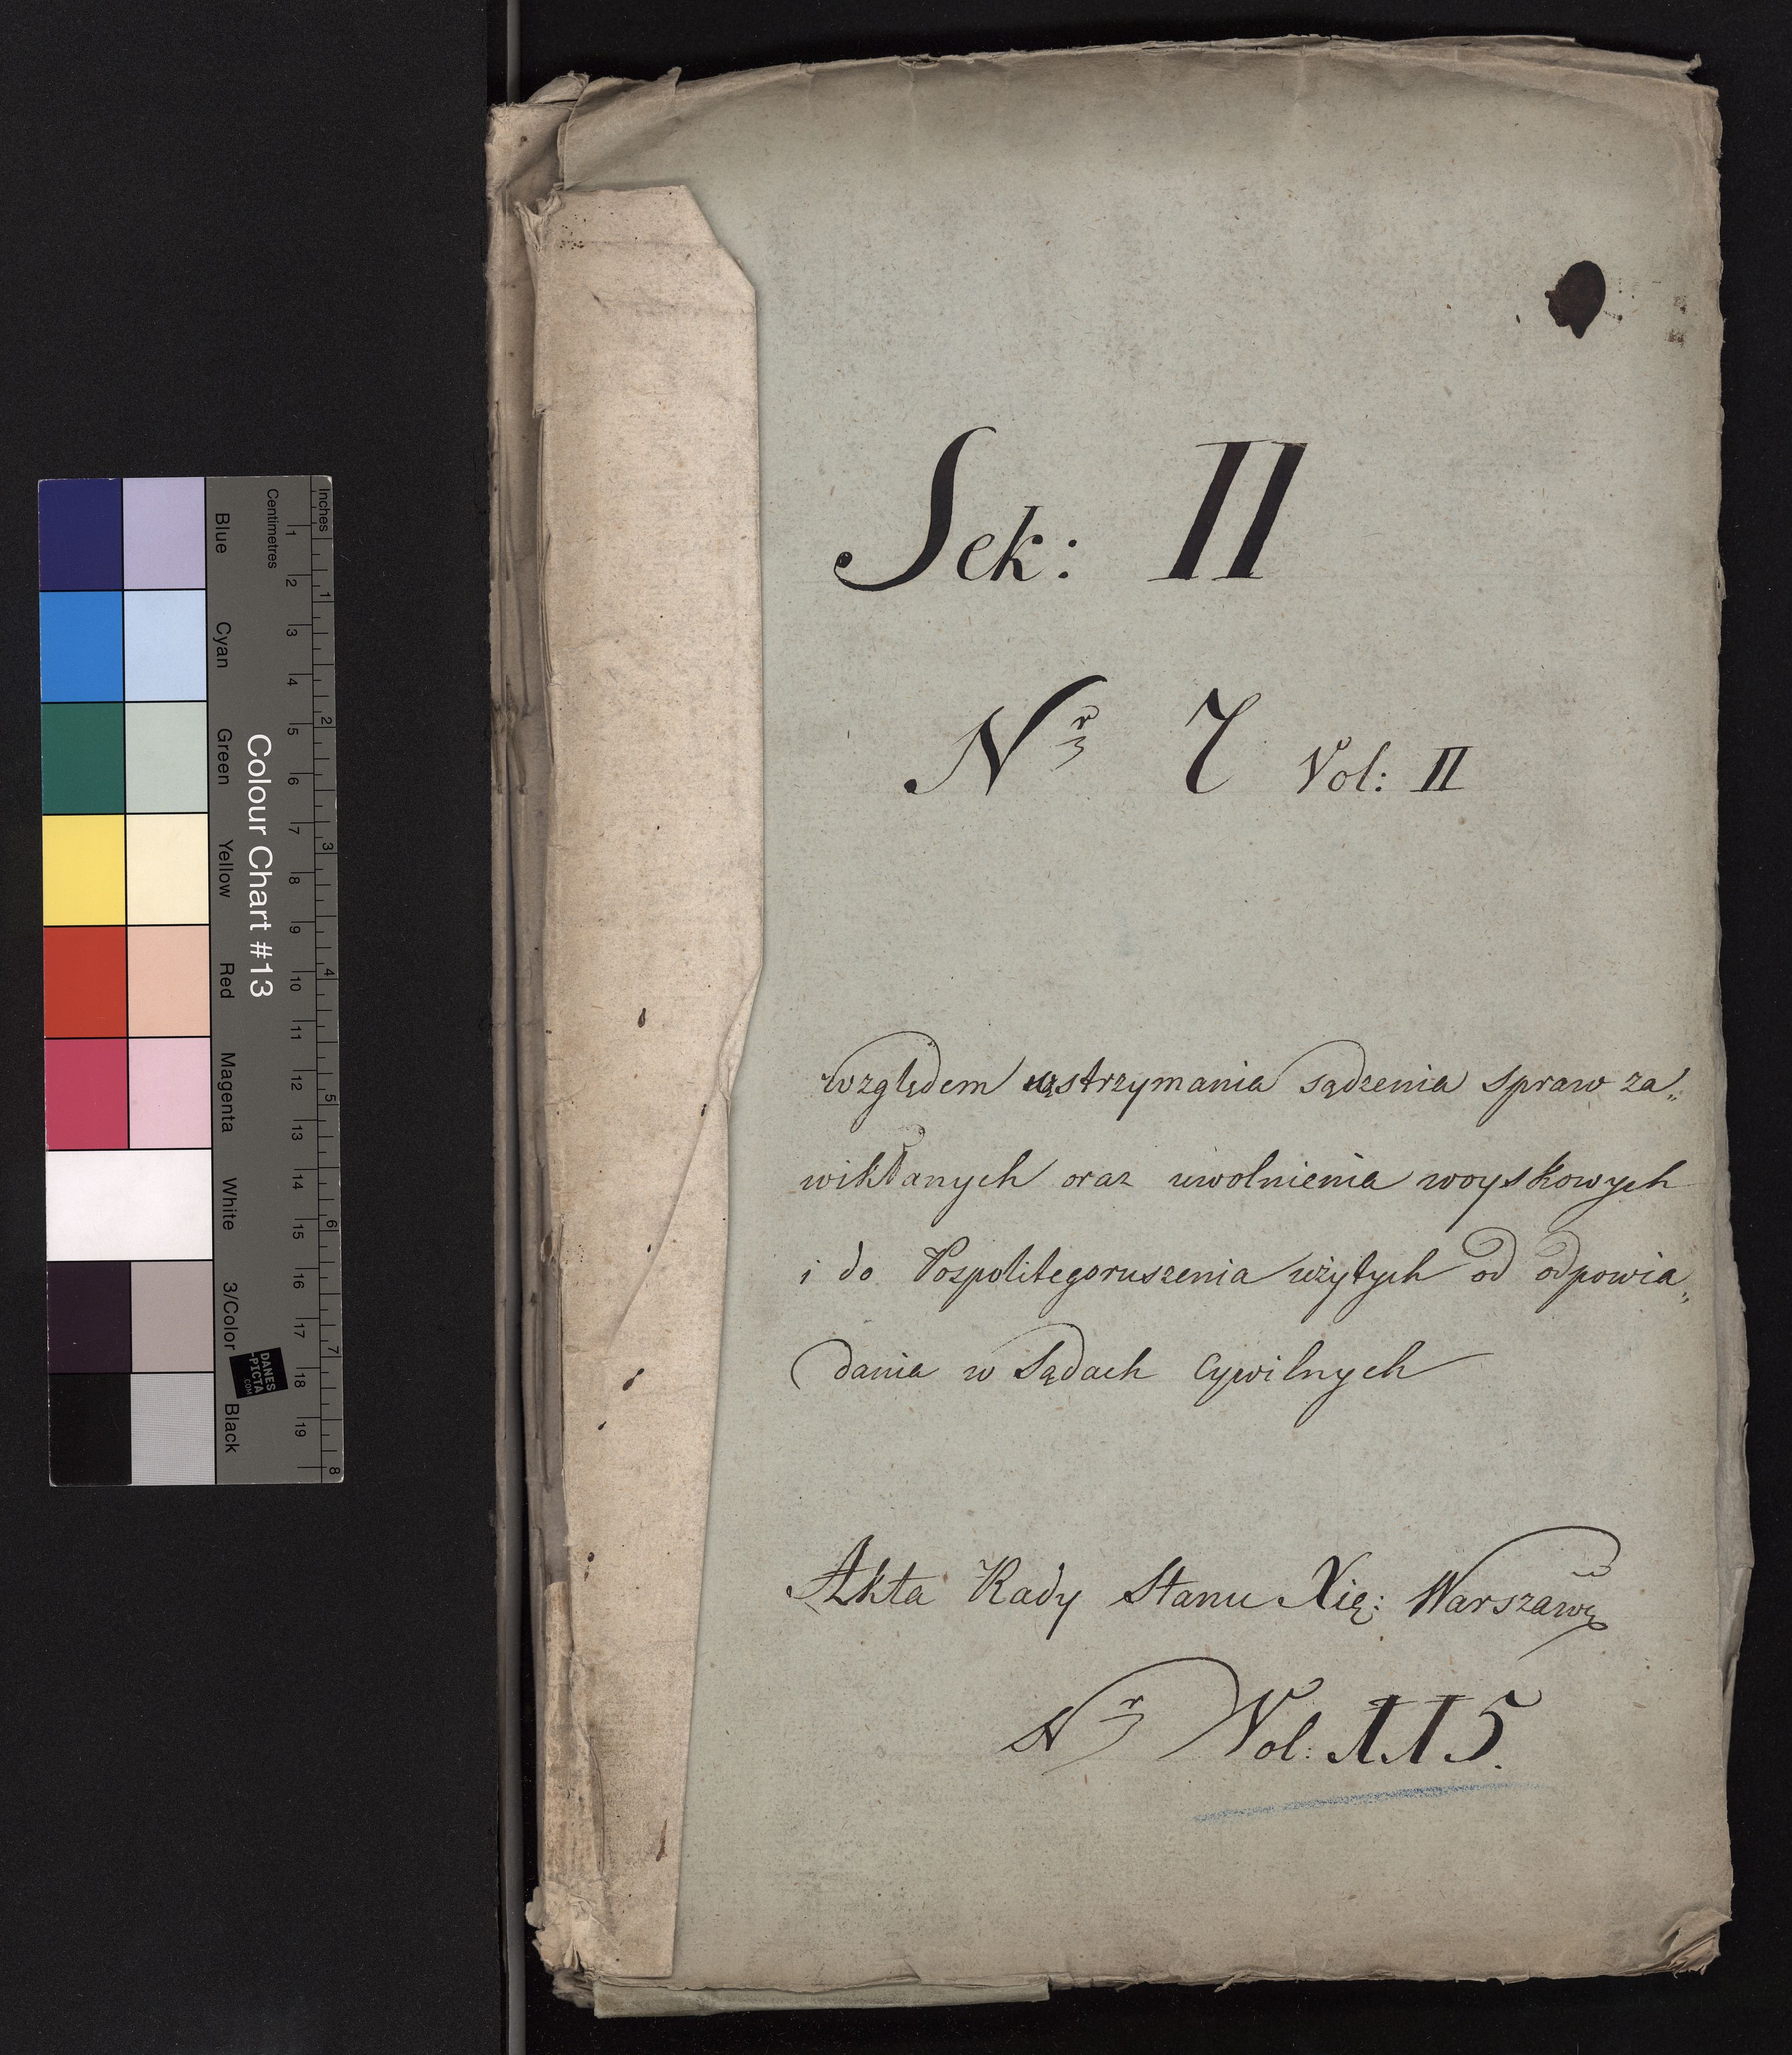 Sek: II
Nr 7 Vol: II
względem wstrzymania sądzenia spraw za„
wikłanych oraz uwolnienia woyskowych
i do Pospolitegoruszenia użytych od odpowia„
dania w Sądach Cywilnych
Akta Rady Stanu Xię: Warszaw
Nr Vol: 115.
Inches
Centimetres
Colour Chart #13
Blue
Cyan
Green
Yellow
Red
Magenta
White
3/Color
Black
DANES
-PICTA
.COM
1 2 3 4 5 6 7 8 9 10 11 12 13 14 15 16 17 18 19
1 2 3 4 5 6 7 8